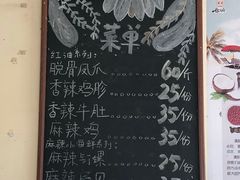 菜单
红油系列:
脱骨凤爪 60/斤
香辣鸡胗 25/份
香辣牛肚 35/份
麻辣鸡 35/份
麻辣小海鲜系列:
麻辣 25/份
麻辣